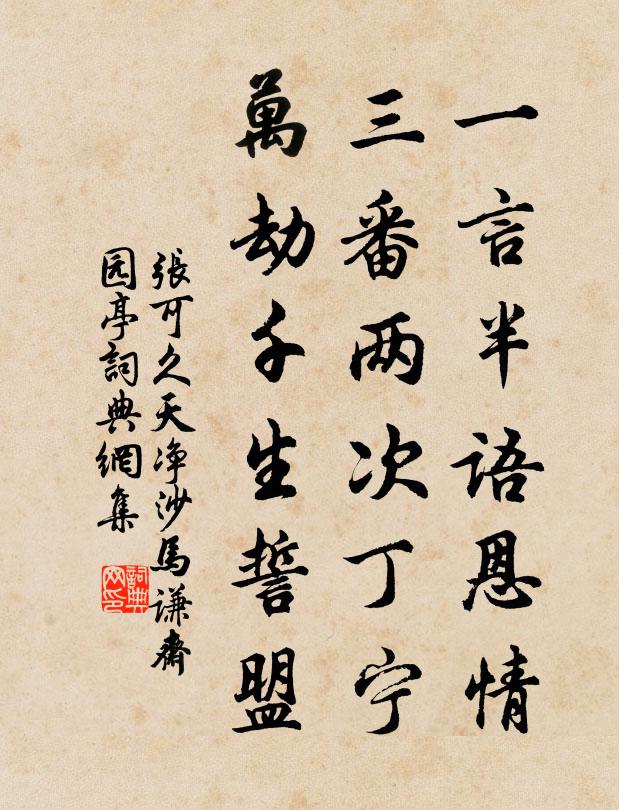 一言半语恩情
三番两次丁宁
萬劫千生誓盟
張可久天净沙馬谦齋
园亭詞典網集
詞典
网印